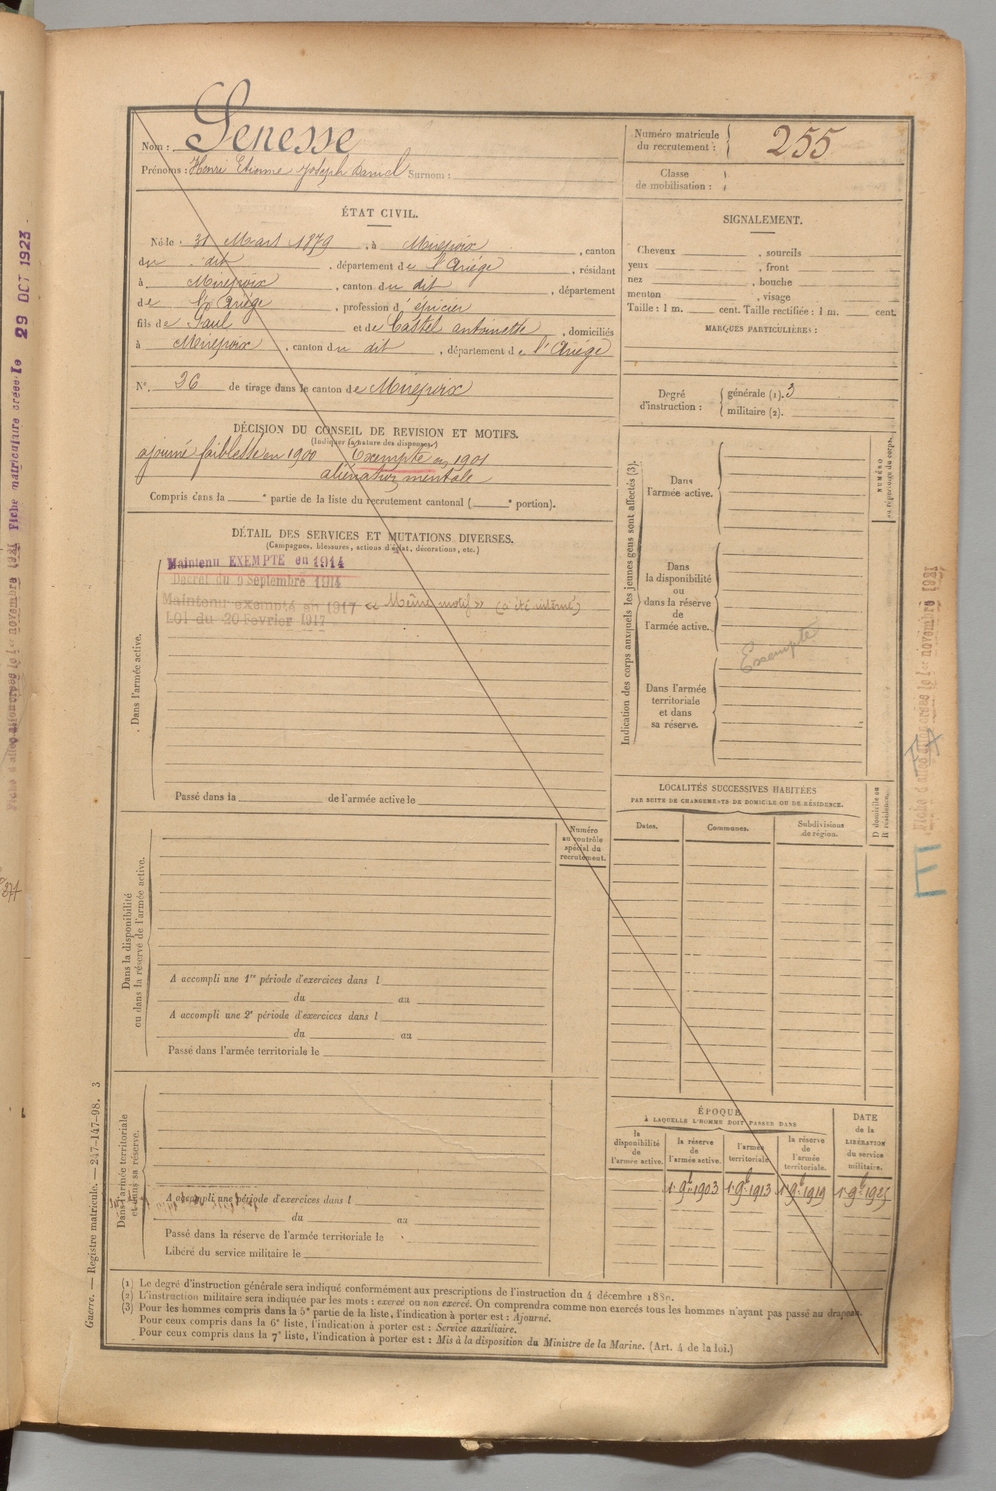 Nom : Senesse
Prénoms : Henri Etienne Joseph Daniel Surnom :
Numéro matricule du recrutement : 255
Classe de mobilisation :
ÉTAT CIVIL.
Né le 31 Mars 1879, à Mirepoix, canton
du dit, département de l'Ariége, résidant
à Mirepoix, canton du dit, département
de l'Ariége, profession d'épicier
fils de Paul et de Castel antoinette, domiciliés
à Mirepoix, canton du dit, département de l'Ariége
N° 26 de tirage dans le canton de Mirepoix
SIGNALEMENT.
Cheveux , sourcils
yeux , front
nez , bouche
menton , visage
Taille : 1 m. cent. Taille rectifiée : 1 m. cent.
MARQUES PARTICULIÈRES :
Degré d'instruction : générale (1). 3
militaire (2).
DÉCISION DU CONSEIL DE REVISION ET MOTIFS.
(Indiquer la nature des dispenses.)
ajourné faiblesse en 1900 Exempté en 1901
aliénation mentale
Compris dans la e partie de la liste du recrutement cantonal ( e portion).
DÉTAIL DES SERVICES ET MUTATIONS DIVERSES.
(Campagnes, blessures, actions d'éclat, décorations, etc.)
Maintenu EXEMPTÉ en 1914
Décret du 9 Septembre 1914
Maintenu exempté en 1917 « Même motif » (a été interné)
LOI du 20 Février 1917
Dans l'armée active.
Passé dans la de l'armée active le
Indication des corps auxquels les jeunes gens sont affectés (3).
NUMÉRO
Dans l'armée active.
Dans la disponibilité ou dans la réserve de l'armée active.
Exempté
Dans l'armée territoriale et dans sa réserve.
LOCALITÉS SUCCESSIVES HABITÉES
PAR SUITE DE CHANGEMENTS DE DOMICILE OU DE RÉSIDENCE.
Dates.
Communes.
Subdivisions de région.
D domicile ou R résidence.
Numéro au contrôle spécial du recrutement.
Dans la disponibilité ou dans la réserve de l'armée active.
A accompli une 1re période d'exercices dans l
du au
A accompli une 2e période d'exercices dans l
du au
Passé dans l'armée territoriale le
Dans l'armée territoriale et dans sa réserve.
A accompli une période d'exercices dans l
du au
Passé dans la réserve de l'armée territoriale le
Libéré du service militaire le
ÉPOQUE
À LAQUELLE L'HOMME DOIT PASSER DANS
la disponibilité de l'armée active.
la réserve de l'armée active.
l'armée territoriale.
la réserve de l'armée territoriale.
DATE de la LIBÉRATION du service militaire.
1er 9bre 1903
1er 9bre 1913
1er 9bre 1919
1er 9bre 1925
(1) Le degré d'instruction générale sera indiqué conformément aux prescriptions de l'instruction du 4 décembre 1889.
(2) L'instruction militaire sera indiquée par les mots : exercé ou non exercé. On comprendra comme non exercés tous les hommes n'ayant pas passé au drapeau.
(3) Pour les hommes compris dans la 5e partie de la liste, l'indication à porter est : Ajourné.
Pour ceux compris dans la 6e liste, l'indication à porter est : Service auxiliaire.
Pour ceux compris dans la 7e liste, l'indication à porter est : Mis à la disposition du Ministre de la Marine. (Art. 4 de la loi.)
Guerre. — Registre matricule. — 247-147-98. 3
Fiche matriculaire créée le 29 OCT 1923